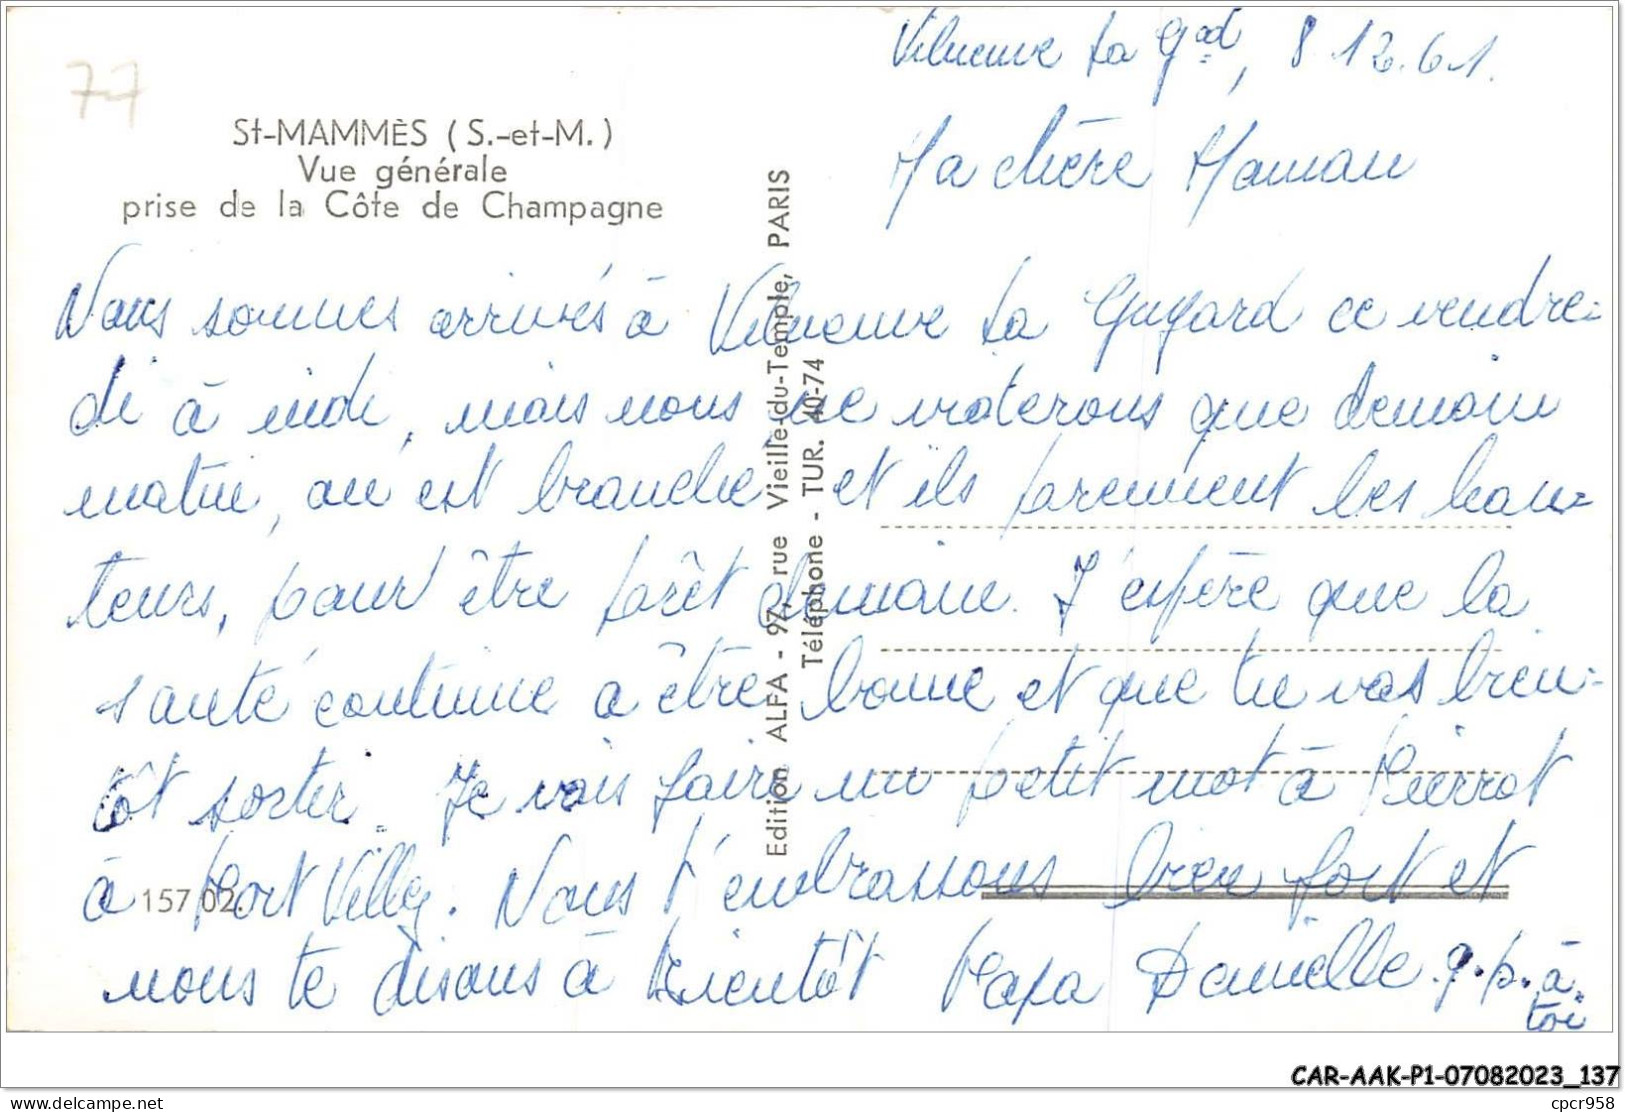 77
St-MAMMÈS (S.-et-M.)
Vue générale
prise de la Côte de Champagne
Vilneuve La Gad, 8.12.61.
Ma chère Maman
Nous sommes arrivés à Vilneuve La Guyard ce vendre-
di à midi, mais nous ne viderons que demain
matin, on est branché et ils prennent les hau-
teurs, pour être prêt demain. J'espère que la
santé continue a être bonne et que tu vas bien-
tôt sortir. Je vais faire un petit mot à Pierrot
à Port Villey. Nous t'embrassons bien fort et
nous te disons à bientôt Papa Danielle q.p. à
toi
157 02.
Edition ALFA - 97, rue Vieille-du-Temple, PARIS
Téléphone - TUR. 40-74
CAR-AAK-P1-07082023_137
delcampe.net
cpcr958